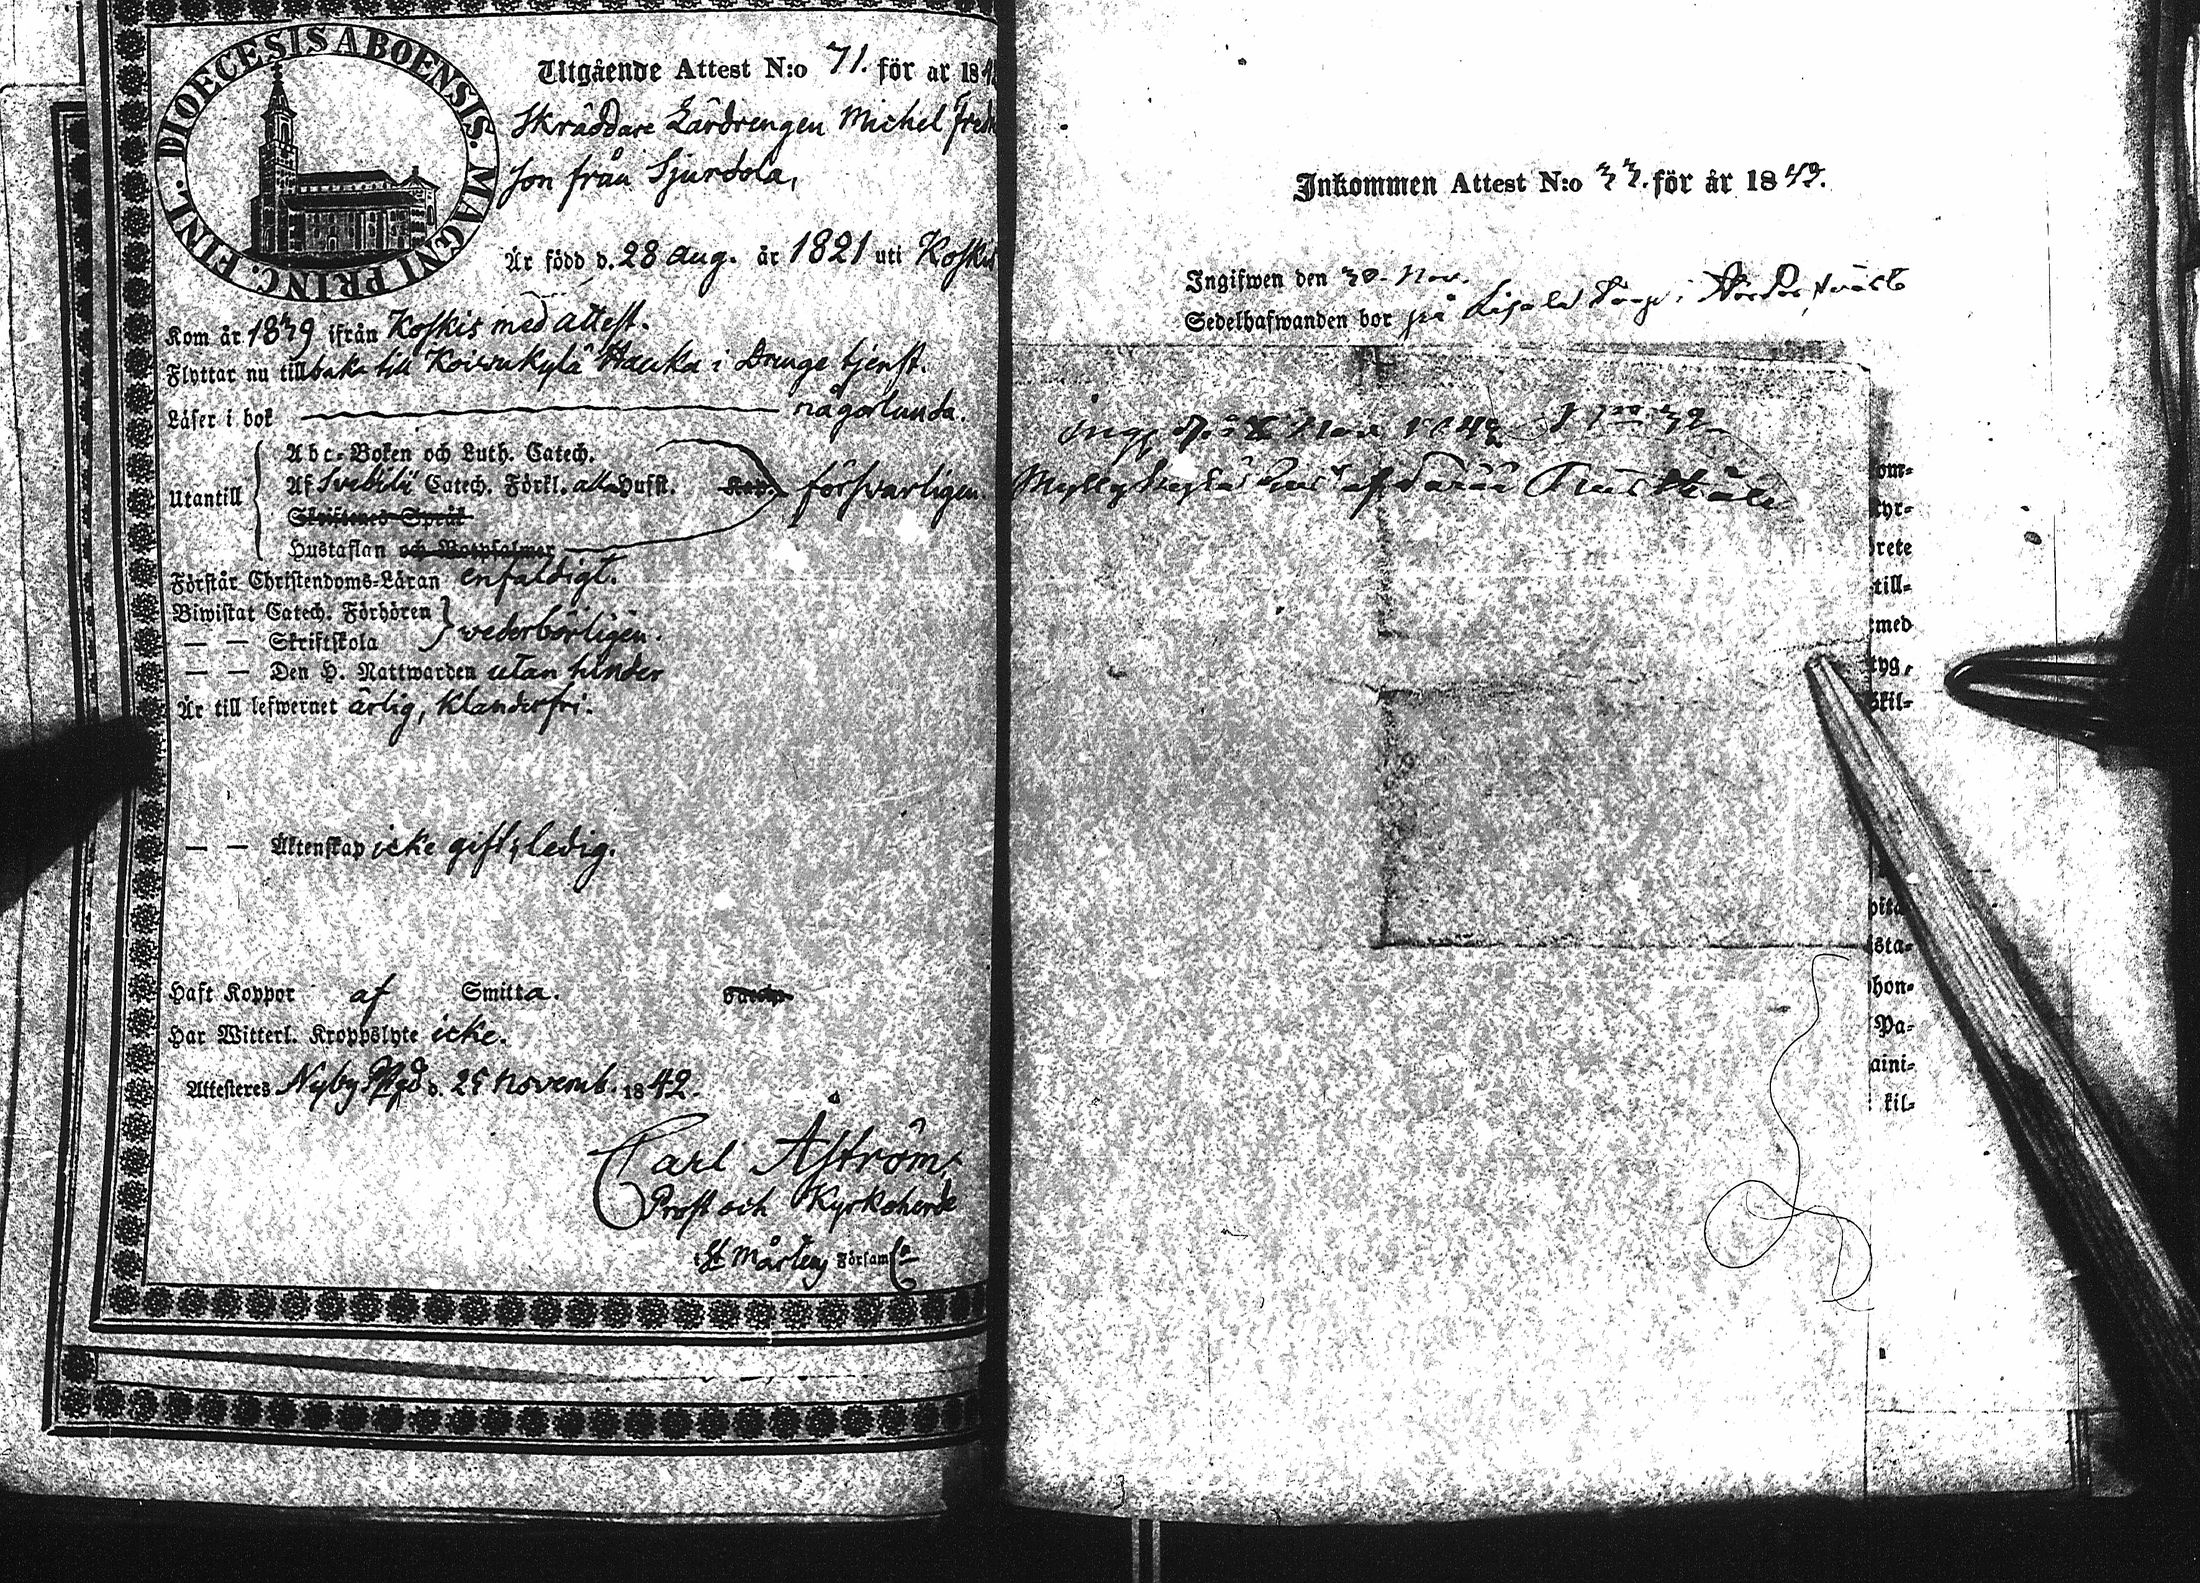 DIOECESIS ABOENSIS. MAGNI PRINC. FINL.
Utgående Attest N:o 71. för år 184
Skräddare Lärdrengen Michel Fred
son från Sjurdola,
Är född d. 28 aug. år 1821 uti Koskis
Kom år 1839 ifrån Koskis med attest.
Flyttar nu tillbaka till Koivukylä Hauka i Drenge tjenst.
Läser i bok någorlunda.
Utantill
Abc-Boken och Luth. Catech.
Af Svebilii Catech. Förkl. alla Husst. försvarligen.
Skriftenes Språk
Hustaflan och Botpsalmer
Förstår Christendoms-Läran enfaldigt.
Biwistat Catech. Förhören
— — Skriftskola wederbörligen.
— — Den H. Nattwarden utan hinder
Är till lefwernet ärlig, klanderfri.
— — Äktenskap icke gift, ledig.
Haft Koppor af Smitta.
Har Witterl. Kroppslyte icke.
Attesteras Nyby Pgd d. 25 novemb. 1842.
Carl Åström
Prost och Kyrkoherde
i St Mårtens Församl
Inkommen Attest N:o för år 18
Ingifwen den 30 Nov.
Sedelhafwanden bor på
om-
tyr-
rete
till-
med
tyg,
Skil-
pita
sta-
hon-
Pa-
aini-
kil-